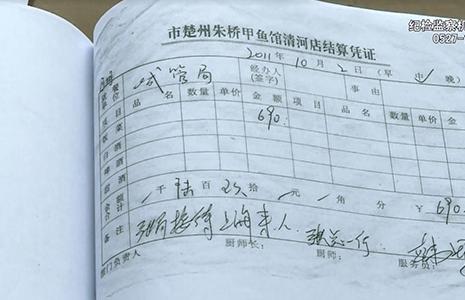 纪检监察机
0527-
市楚州朱桥甲鱼馆清河店结算凭证
2011年10月2日(早 中 晚)
就餐单位 城管局 经办人(签字) 事由
项目 品名 数量 单价 金额 项目 品名 数量 单价 金额
饭菜 690.
白酒
啤酒
烟酒
金额合计 仟 陆 百 玖 拾 元 角 分 ¥ 690
备注 接待上海来人
部门负责人 厨师长: 厨师: 服务员: